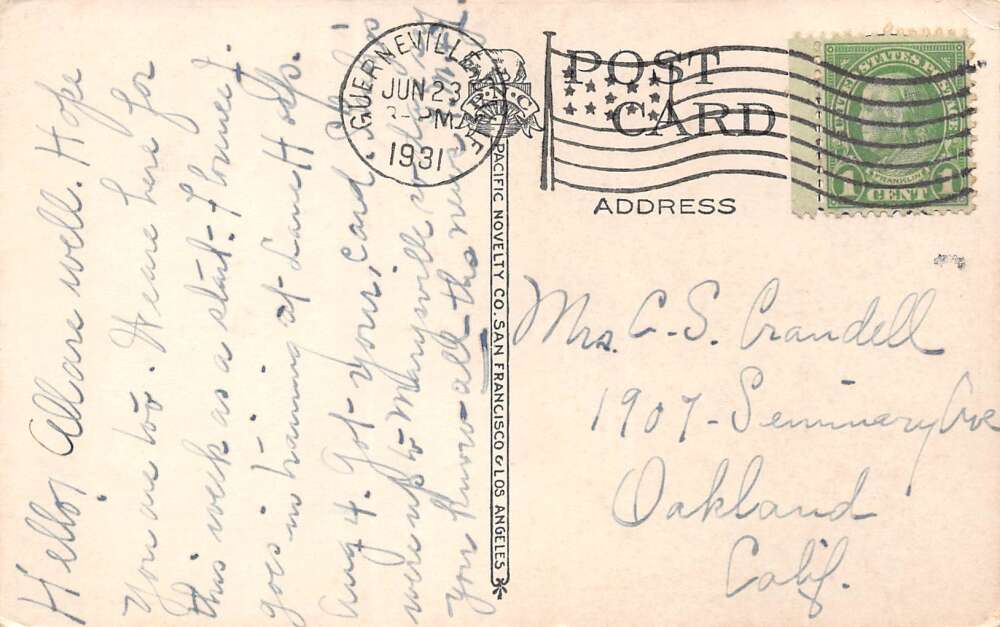 Hello, All are well. Hope
you are too. We are here for
this week as a start. Homer
goes in training at Lane Hosp.
Aug 4. Got your card. Sho's
were up to Marysville so
you know all the news
GUERNEVILLE
JUN 23
PM
1931
P N C
PACIFIC NOVELTY CO. SAN FRANCISCO & LOS ANGELES
POST
CARD
ADDRESS
UNITED STATES POSTAGE
FRANKLIN
1 CENT 1
Mrs. C. S. Crandell
1907 - Seminary Ave
Oakland
Calif.